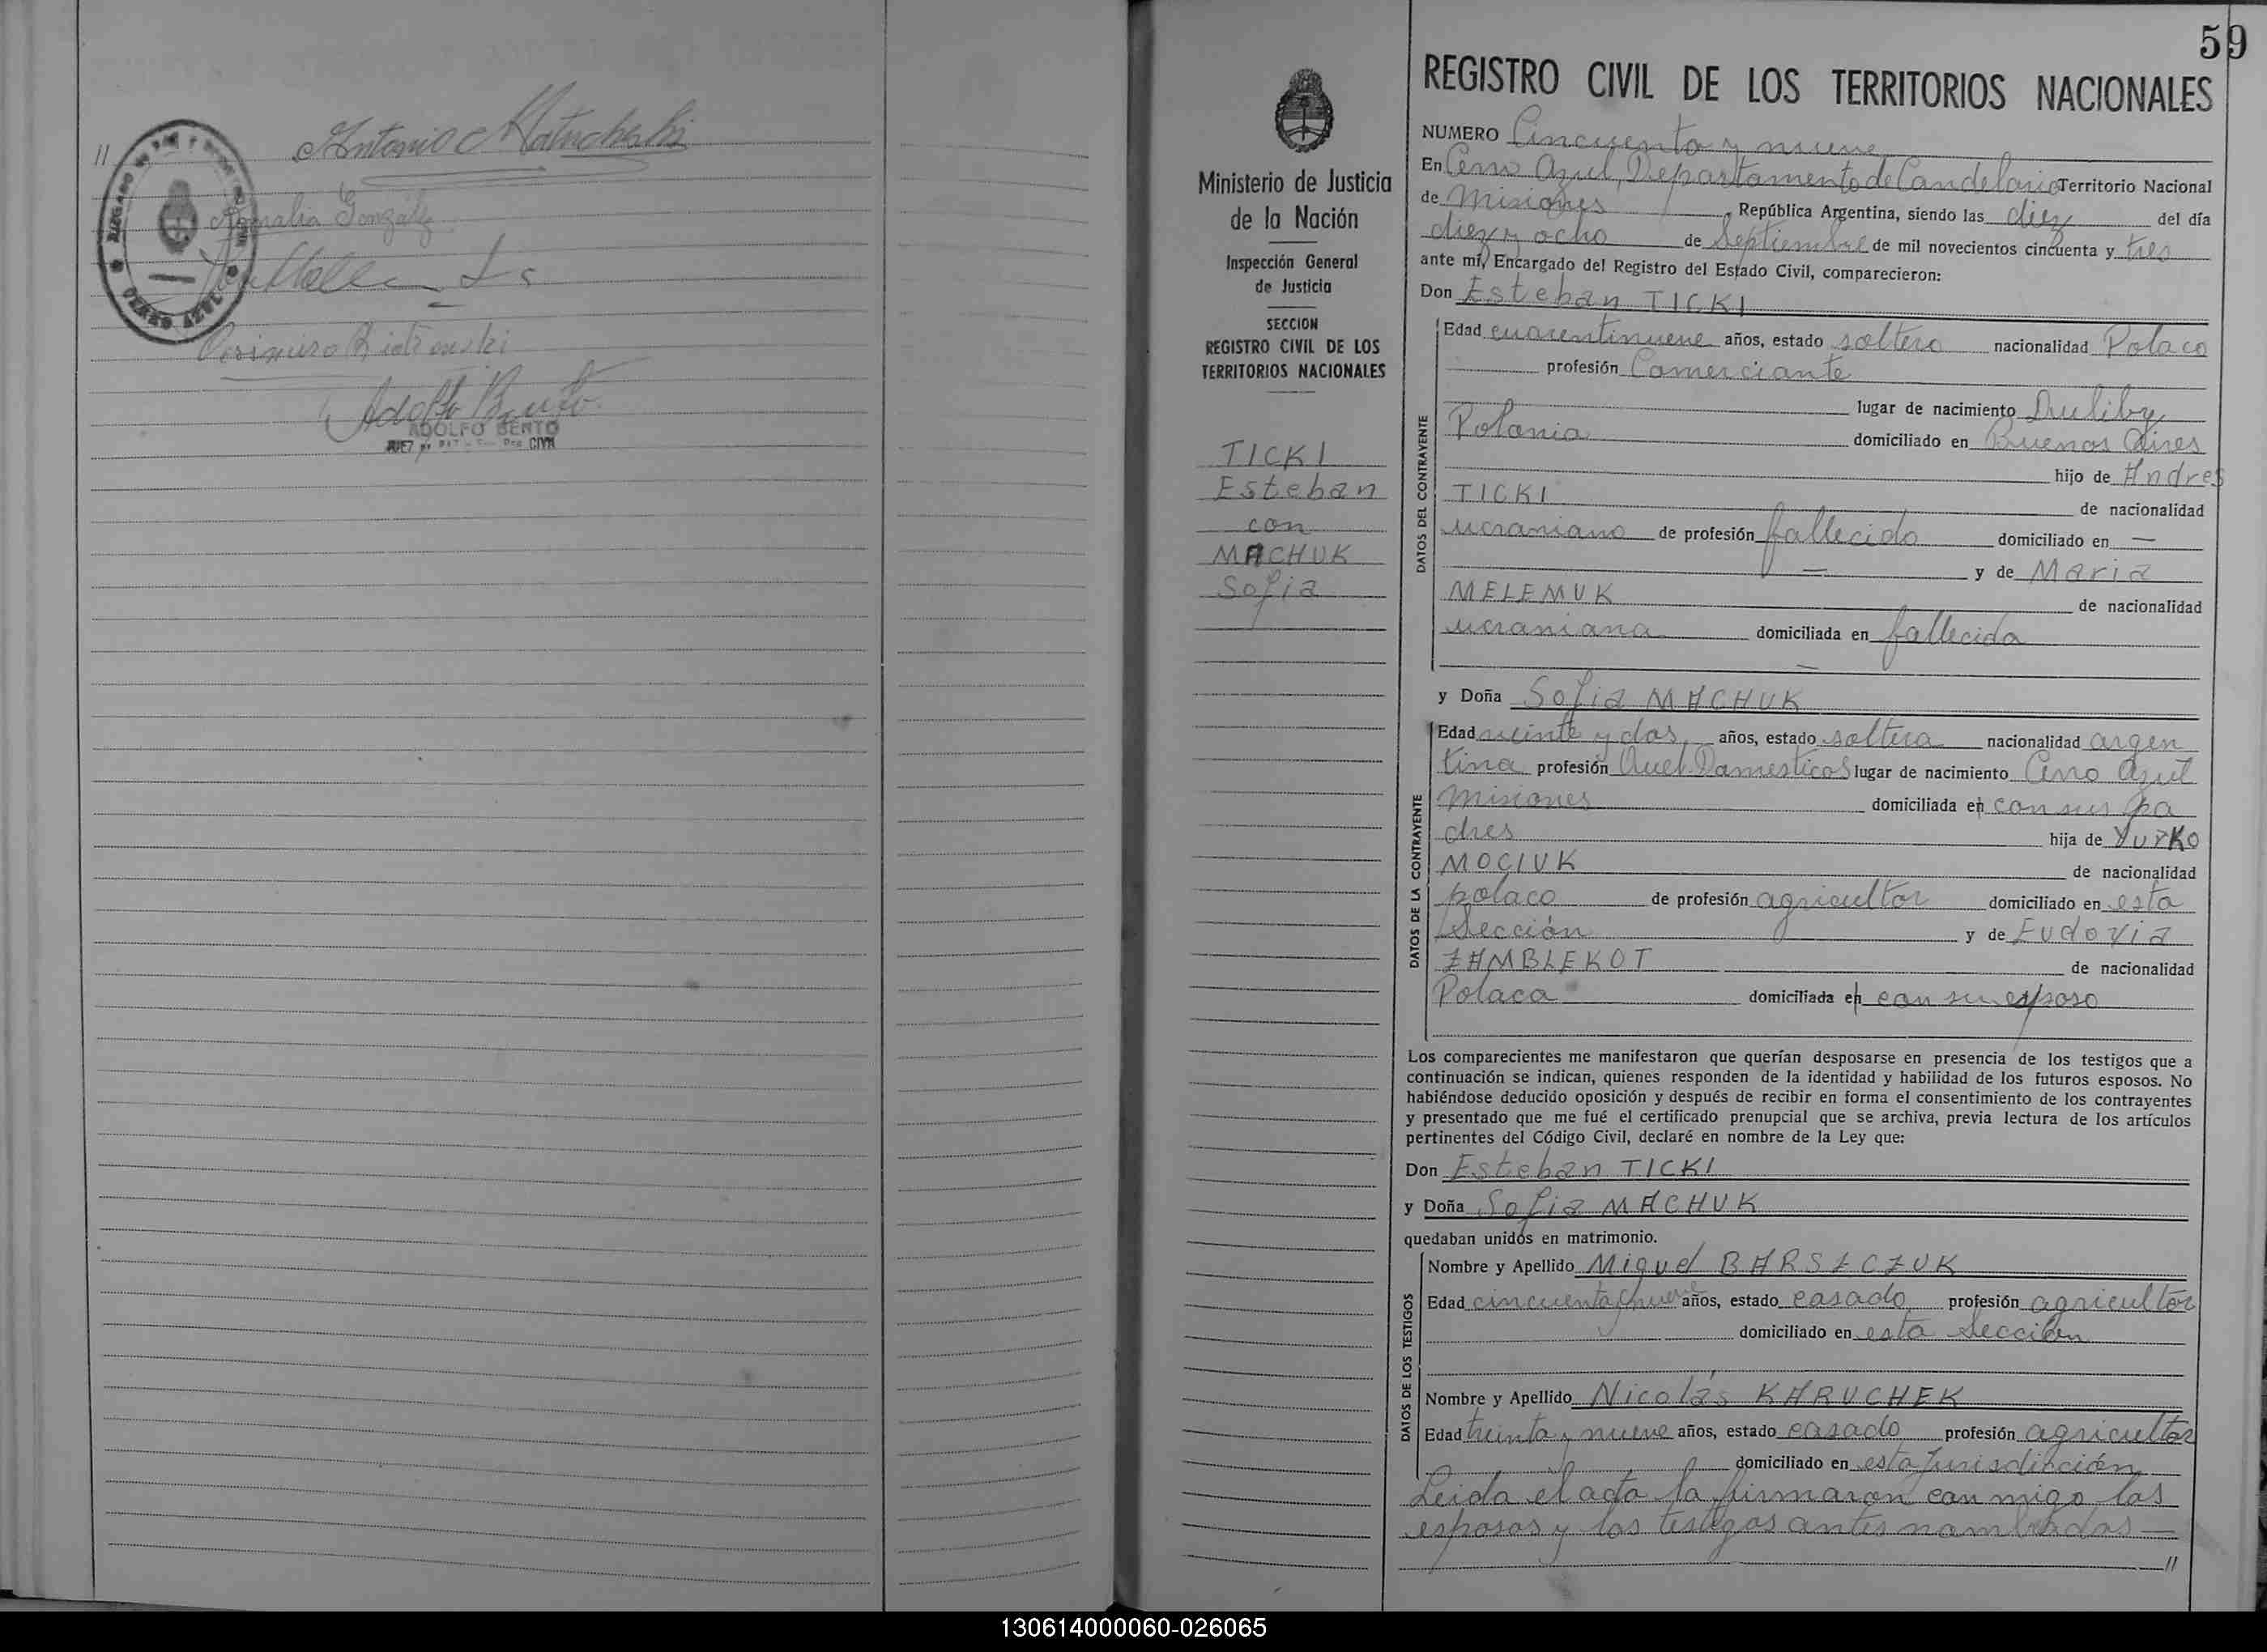 //
Antonio Matuchaski
Amalia Gonzalez
JUZGADO DE PAZ Y
CERRO AZUL
Adolfo Bento
ADOLFO BENTO
JUEZ CIVIL
59
REGISTRO CIVIL DE LOS TERRITORIOS NACIONALES
Ministerio de Justicia
de la Nación
Inspección General
de Justicia
SECCION
REGISTRO CIVIL DE LOS
TERRITORIOS NACIONALES
TICKI
Esteban
con
MACHUK
Sofia
NUMERO Cincuenta y nueve
En Cerro Azul, Departamento de Candelaria Territorio Nacional
de Misiones, República Argentina, siendo las diez del día
diez y ocho de Septiembre de mil novecientos cincuenta y tres
ante mí, Encargado del Registro del Estado Civil, comparecieron:
Don Esteban TICKI
DATOS DEL CONTRAYENTE
Edad cuarentinueve años, estado soltero nacionalidad Polaco
profesión Comerciante
lugar de nacimiento Duliby
Polonia domiciliado en Buenos Aires
hijo de Andres
TICKI de nacionalidad
ucraniano de profesión fallecido domiciliado en —
— y de Maria
MELEMUK de nacionalidad
ucraniana domiciliada en fallecida
—
y Doña Sofia MACHUK
DATOS DE LA CONTRAYENTE
Edad veinte y dos años, estado soltera nacionalidad argen
tina profesión Quel. Domesticos lugar de nacimiento Cerro Azul
Misiones domiciliada en con sus pa
dres hija de Yurko
MOCIUK de nacionalidad
polaco de profesión agricultor domiciliado en esta
Sección y de Eudoxia
ZAMBLEKOT de nacionalidad
Polaca domiciliada en con su esposo
Los comparecientes me manifestaron que querían desposarse en presencia de los testigos que a
continuación se indican, quienes responden de la identidad y habilidad de los futuros esposos. No
habiéndose deducido oposición y después de recibir en forma el consentimiento de los contrayentes
y presentado que me fué el certificado prenupcial que se archiva, previa lectura de los artículos
pertinentes del Código Civil, declaré en nombre de la Ley que:
Don Esteban TICKI
y Doña Sofia MACHUK
quedaban unidos en matrimonio.
DATOS DE LOS TESTIGOS
Nombre y Apellido Miguel BARSZCZUK
Edad cincuenta y nueve años, estado casado profesión agricultor
domiciliado en esta Sección
Nombre y Apellido Nicolás KARUCHEK
Edad treinta y nueve años, estado casado profesión agricultor
domiciliado en esta Jurisdicción
Leida el acta la firmaron con migo los
esposos y los testigos antes nombrados —
//
130614000060-026065